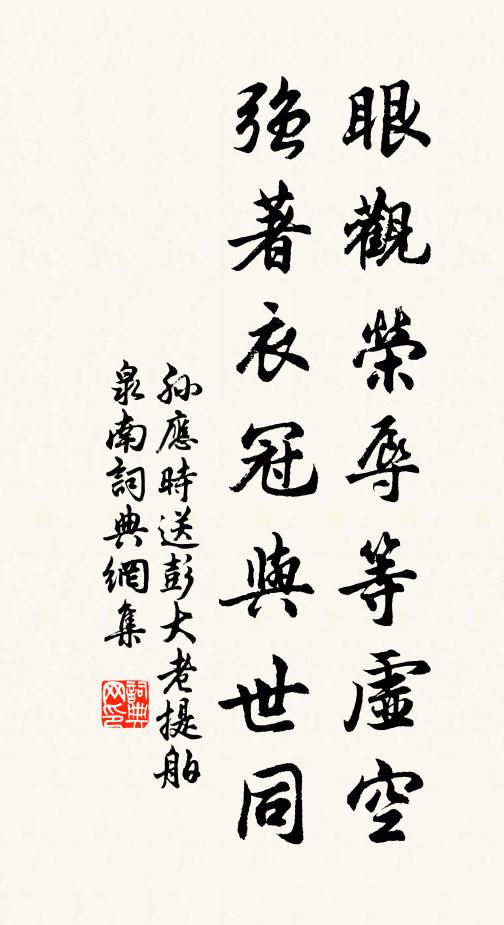 眼觀榮辱等虛空
強著衣冠與世同
孫應時送彭大老提舶
泉南詞典網集
詞典網印